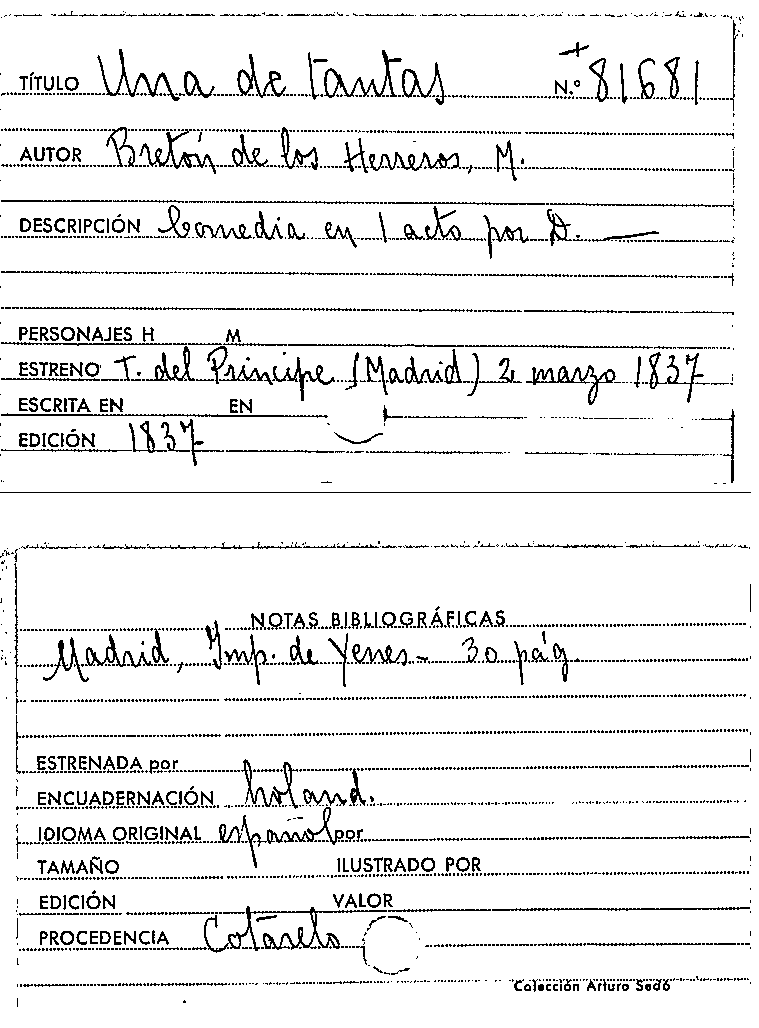 TÍTULO Una de tantas N.º + 81681
AUTOR Bretón de los Herreros, M.
DESCRIPCIÓN Comedia en 1 acto por D. —
PERSONAJES H M
ESTRENO T. del Príncipe (Madrid) 2 marzo 1837
ESCRITA EN EN
EDICIÓN 1837
NOTAS BIBLIOGRÁFICAS
Madrid, Imp. de Yenes - 30 pág.
ESTRENADA por
ENCUADERNACIÓN holand.
IDIOMA ORIGINAL español por
TAMAÑO ILUSTRADO POR
EDICIÓN VALOR
PROCEDENCIA Cotarelo
Colección Arturo Sedó